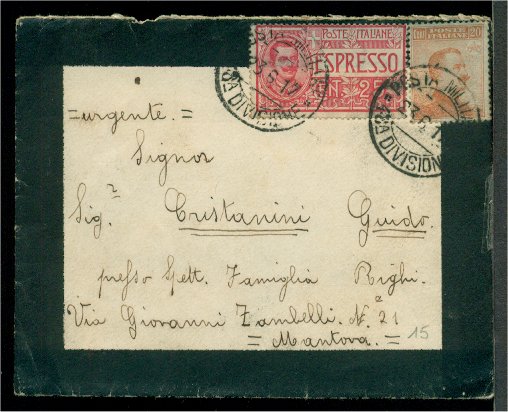 POSTE ITALIANE
ESPRESSO
CENT. 25
POSTE ITALIANE 20
POSTA MILITARE
DIVISIONE
POSTA MILIT
DIVISIONE
=urgente.=
Signor
Sig.r Cristanini Guido.
presso Spett. Famiglia Righi.
Via Giovanni Zambelli. N.° 21
= Mantova. =
15